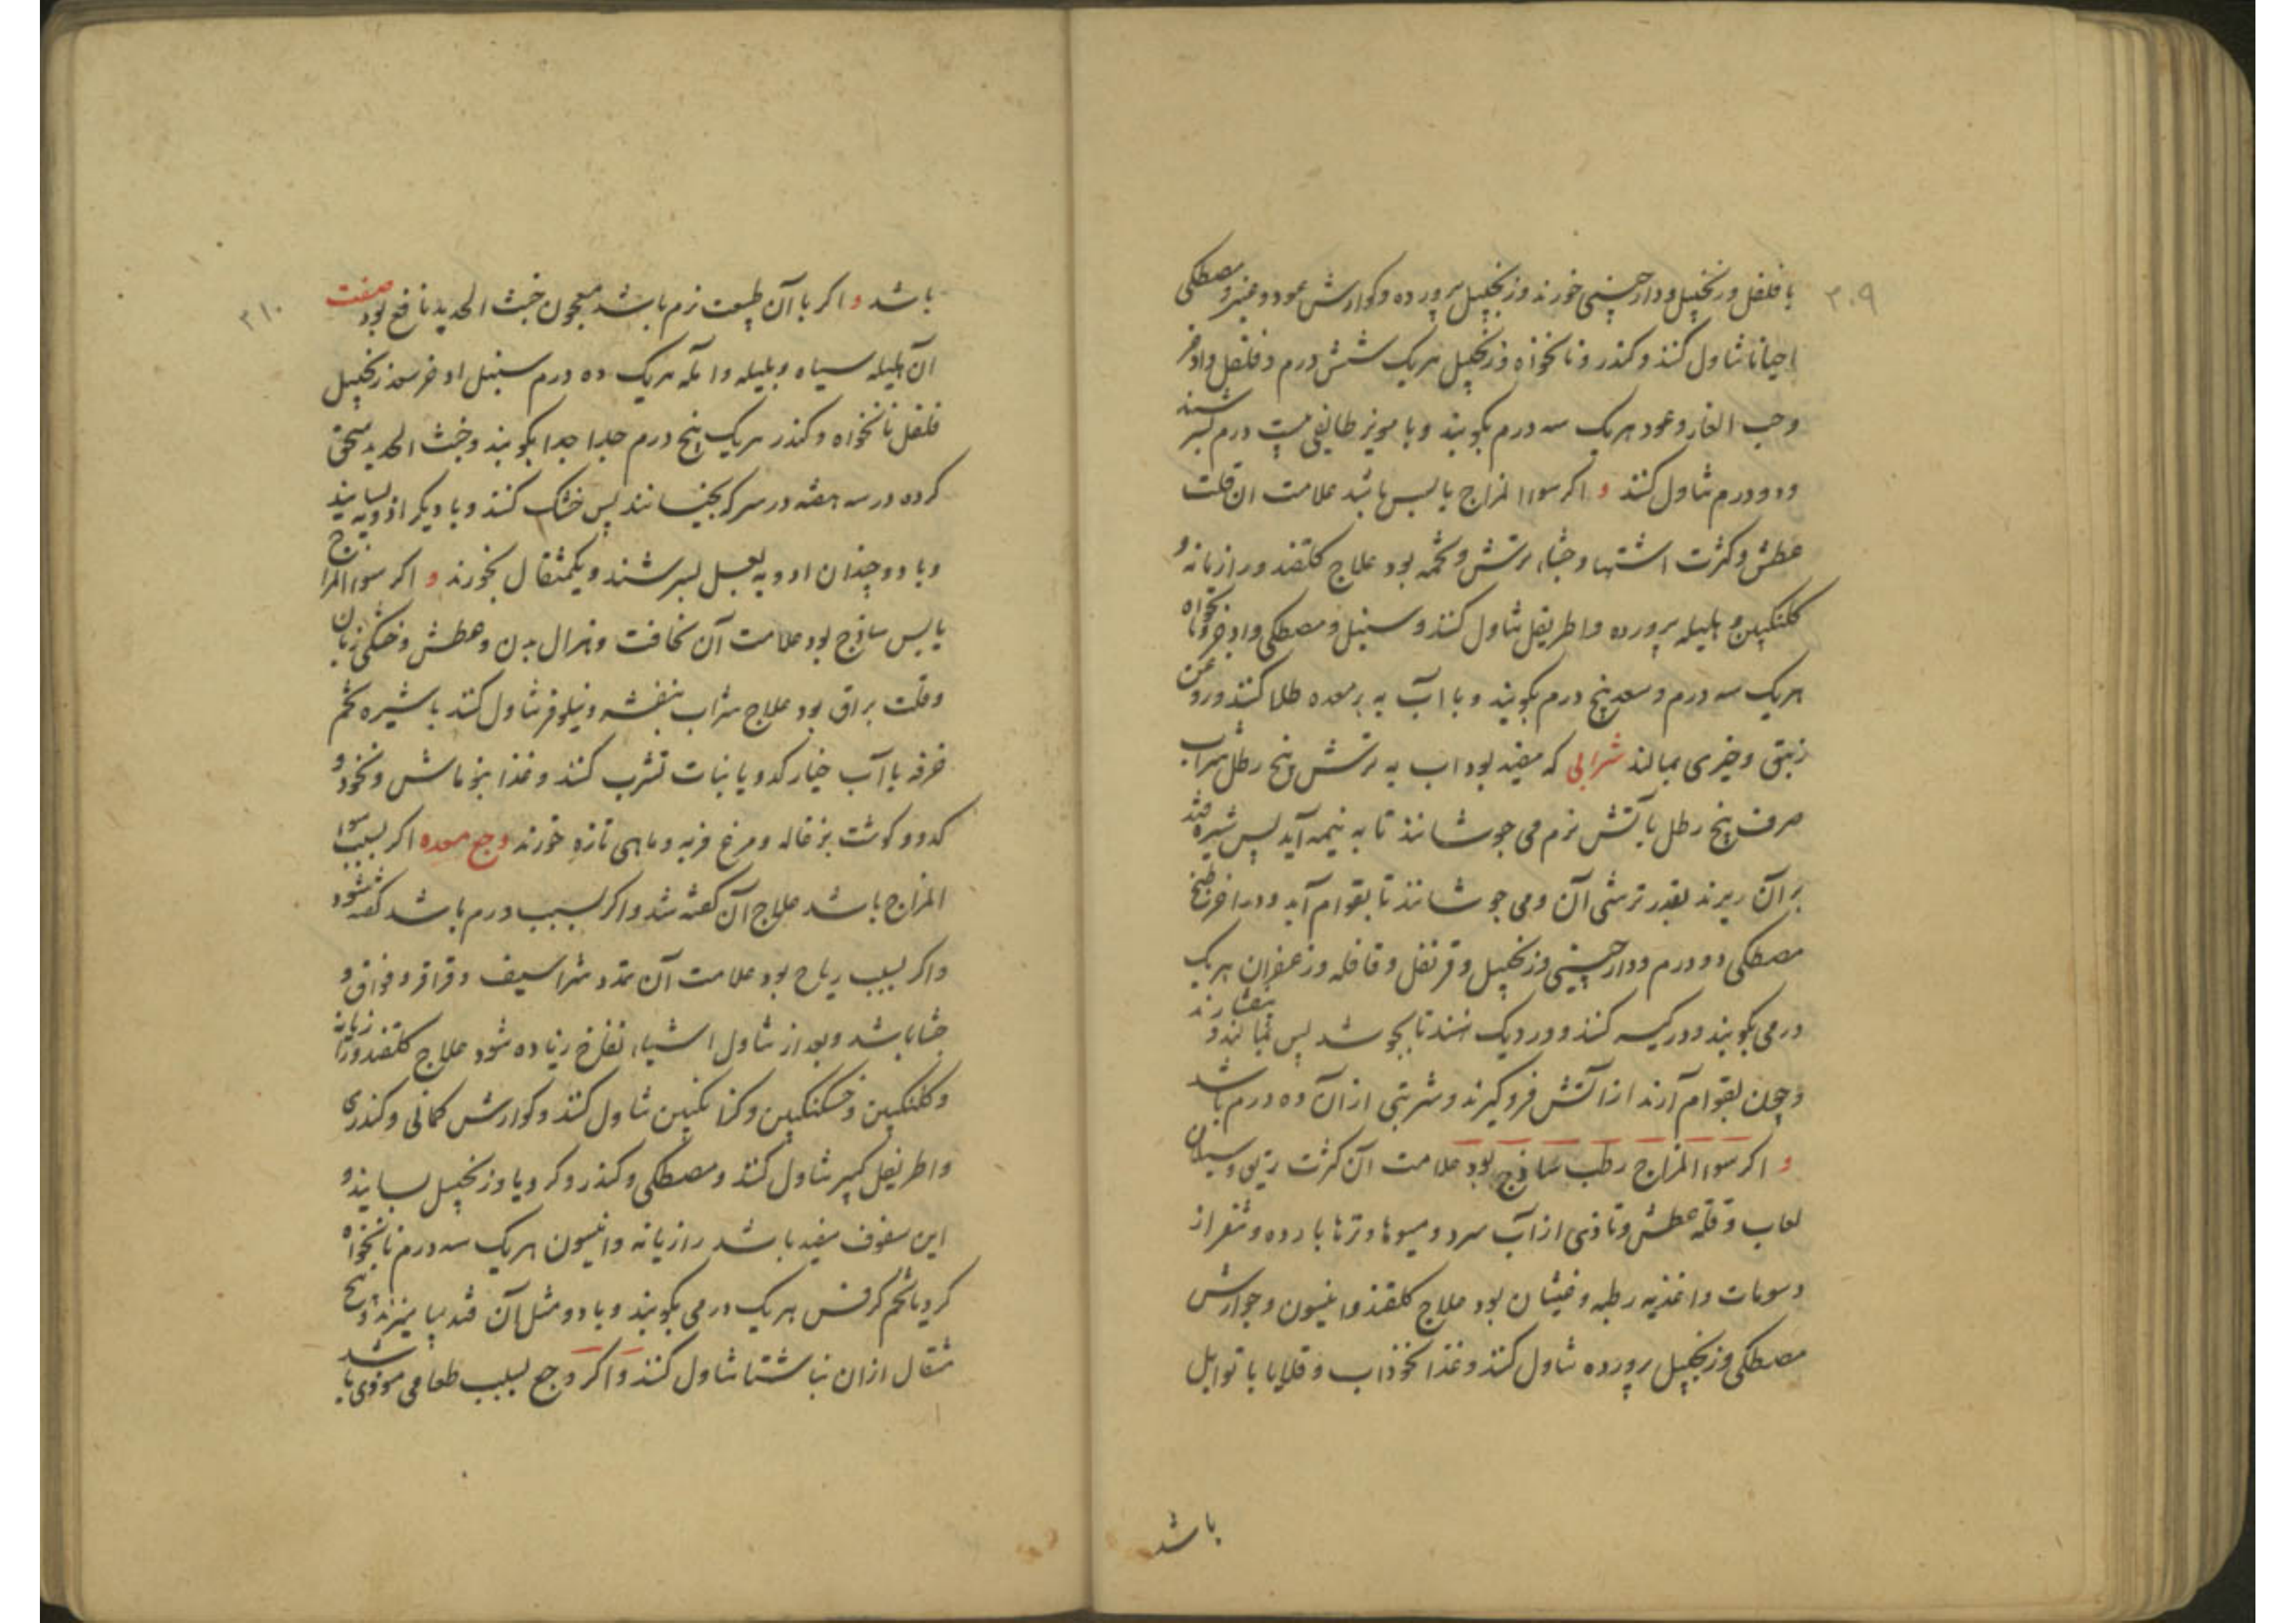 ۳۰۹
با فلفل و زنجپیل و دارچینی خورند و زنجپیل پرورده و کوارش عود و عنبر و مصطکی
احیانا تناول کنند و کندر و نانخواه و زنجپیل هریک شش درم و فلفل و اذخر
و حب الغار و عود هریک سه درم بکوبند و با مویز طایفی بیست درم بسرشند
و دو درم تناول کنند و اکر سوء المزاج یابس باشد علامت ان قلت
عطش و کثرت اشتها و جشاء ترش و تخمه بود علاج کلقند و رازیانه و
کلنکبین و هلیله پرورده و اطریفل تناول کنند و سنبل و مصطکی و اذخر و نانخواه
هریک سه درم و سعد پنج درم بکوبند و با آب به بر معده طلا کنند و روغن
زنبق و خیری بمالند شرابی که مفید بود اب به ترش پنج رطل شراب
صرف پنج رطل بآتش نرم می جوشانند تا به نیمه آید پس شیره قند
بر آن ریزند بقدر ترشی آن و می جوشانند تا بقوام آید و در اخر طبخ
مصطکی دو درم و دارچینی و زنجپیل و قرنفل و قاقله و زعفران هریک
درمی بکوبند و در کیسه کنند و در دیک نهند تا بجوشد پس بمالند و بیفشارند
و چون بقوام آرند از آتش فرو کیرند و شربتی از آن ده درم باشد
و اکر سوء المزاج رطب ساذج بود علامت آن کثرت بزاق و سیلان
لعاب و قلة عطش و تاذی از آب سرد و میوها و ترها بارده و تنفر از
دسومات و اغذیه رطبه و غیثان بود علاج کلقند و انیسون و جوارش
مصطکی و زنجپیل پرورده تناول کنند و غذا نخوذاب و قلایا با توابل
باشد
۳۱۰
باشد و اکر با آن طبیعت نرم باشد معجون خبث الحدید نافع بود صفت
ان هلیله سیاه و بلیله و امله هریک ده درم سنبل اذخر سعد زنجپیل
فلفل نانخواه و کندر هریک پنج درم جدا جدا بکوبند و خبث الحدید سحق
کرده در سه هفته در سرکه بخیسانند پس خشک کنند و با دیکر ادویه بسایند
و با دو چندان ادویه بعسل بسرشند و یکمثقال بخورند و اکر سوء المزاج
یابس ساذج بود علامت آن نحافت و هزال بدن و عطش و خشکی زبان
و قلت بزاق بود علاج شراب بنفشه و نیلوفر تناول کنند با شیره تخم
خرفه یا آب خیار کدو یا نبات تشرب کنند و غذا بنوماش و نخود و
کدو و کوشت بزغاله و مرغ فربه و ماهی تازه خورند وجع معده اکر بسبب سوء
المزاج باشد علاج آن کفته شد و اکر بسبب ورم باشد کفته شود
و اکر بسبب ریاح بود علامت آن تمدد شراسیف و قراقر و فواق و
جشا باشد و بعد از تناول اشیاء نفاخ زیاده شود علاج کلقند و رازیانه
و کلنکبین و خسکنکبین و کزانکبین تناول کنند و کوارش کمانی و کندری
و اطریفل کبیر تناول کنند و مصطکی و کندر و کرویا و زنجپیل بسایند و
این سفوف مفید باشد رازیانه و انیسون هریک سه درم نانخواه
کرویا تخم کرفس هریک درمی بکوبند و با دو مثل آن قند بیامیزند و پنج
مثقال ازان بناشتا تناول کنند و اکر وجع بسبب طعامی موذی باشد